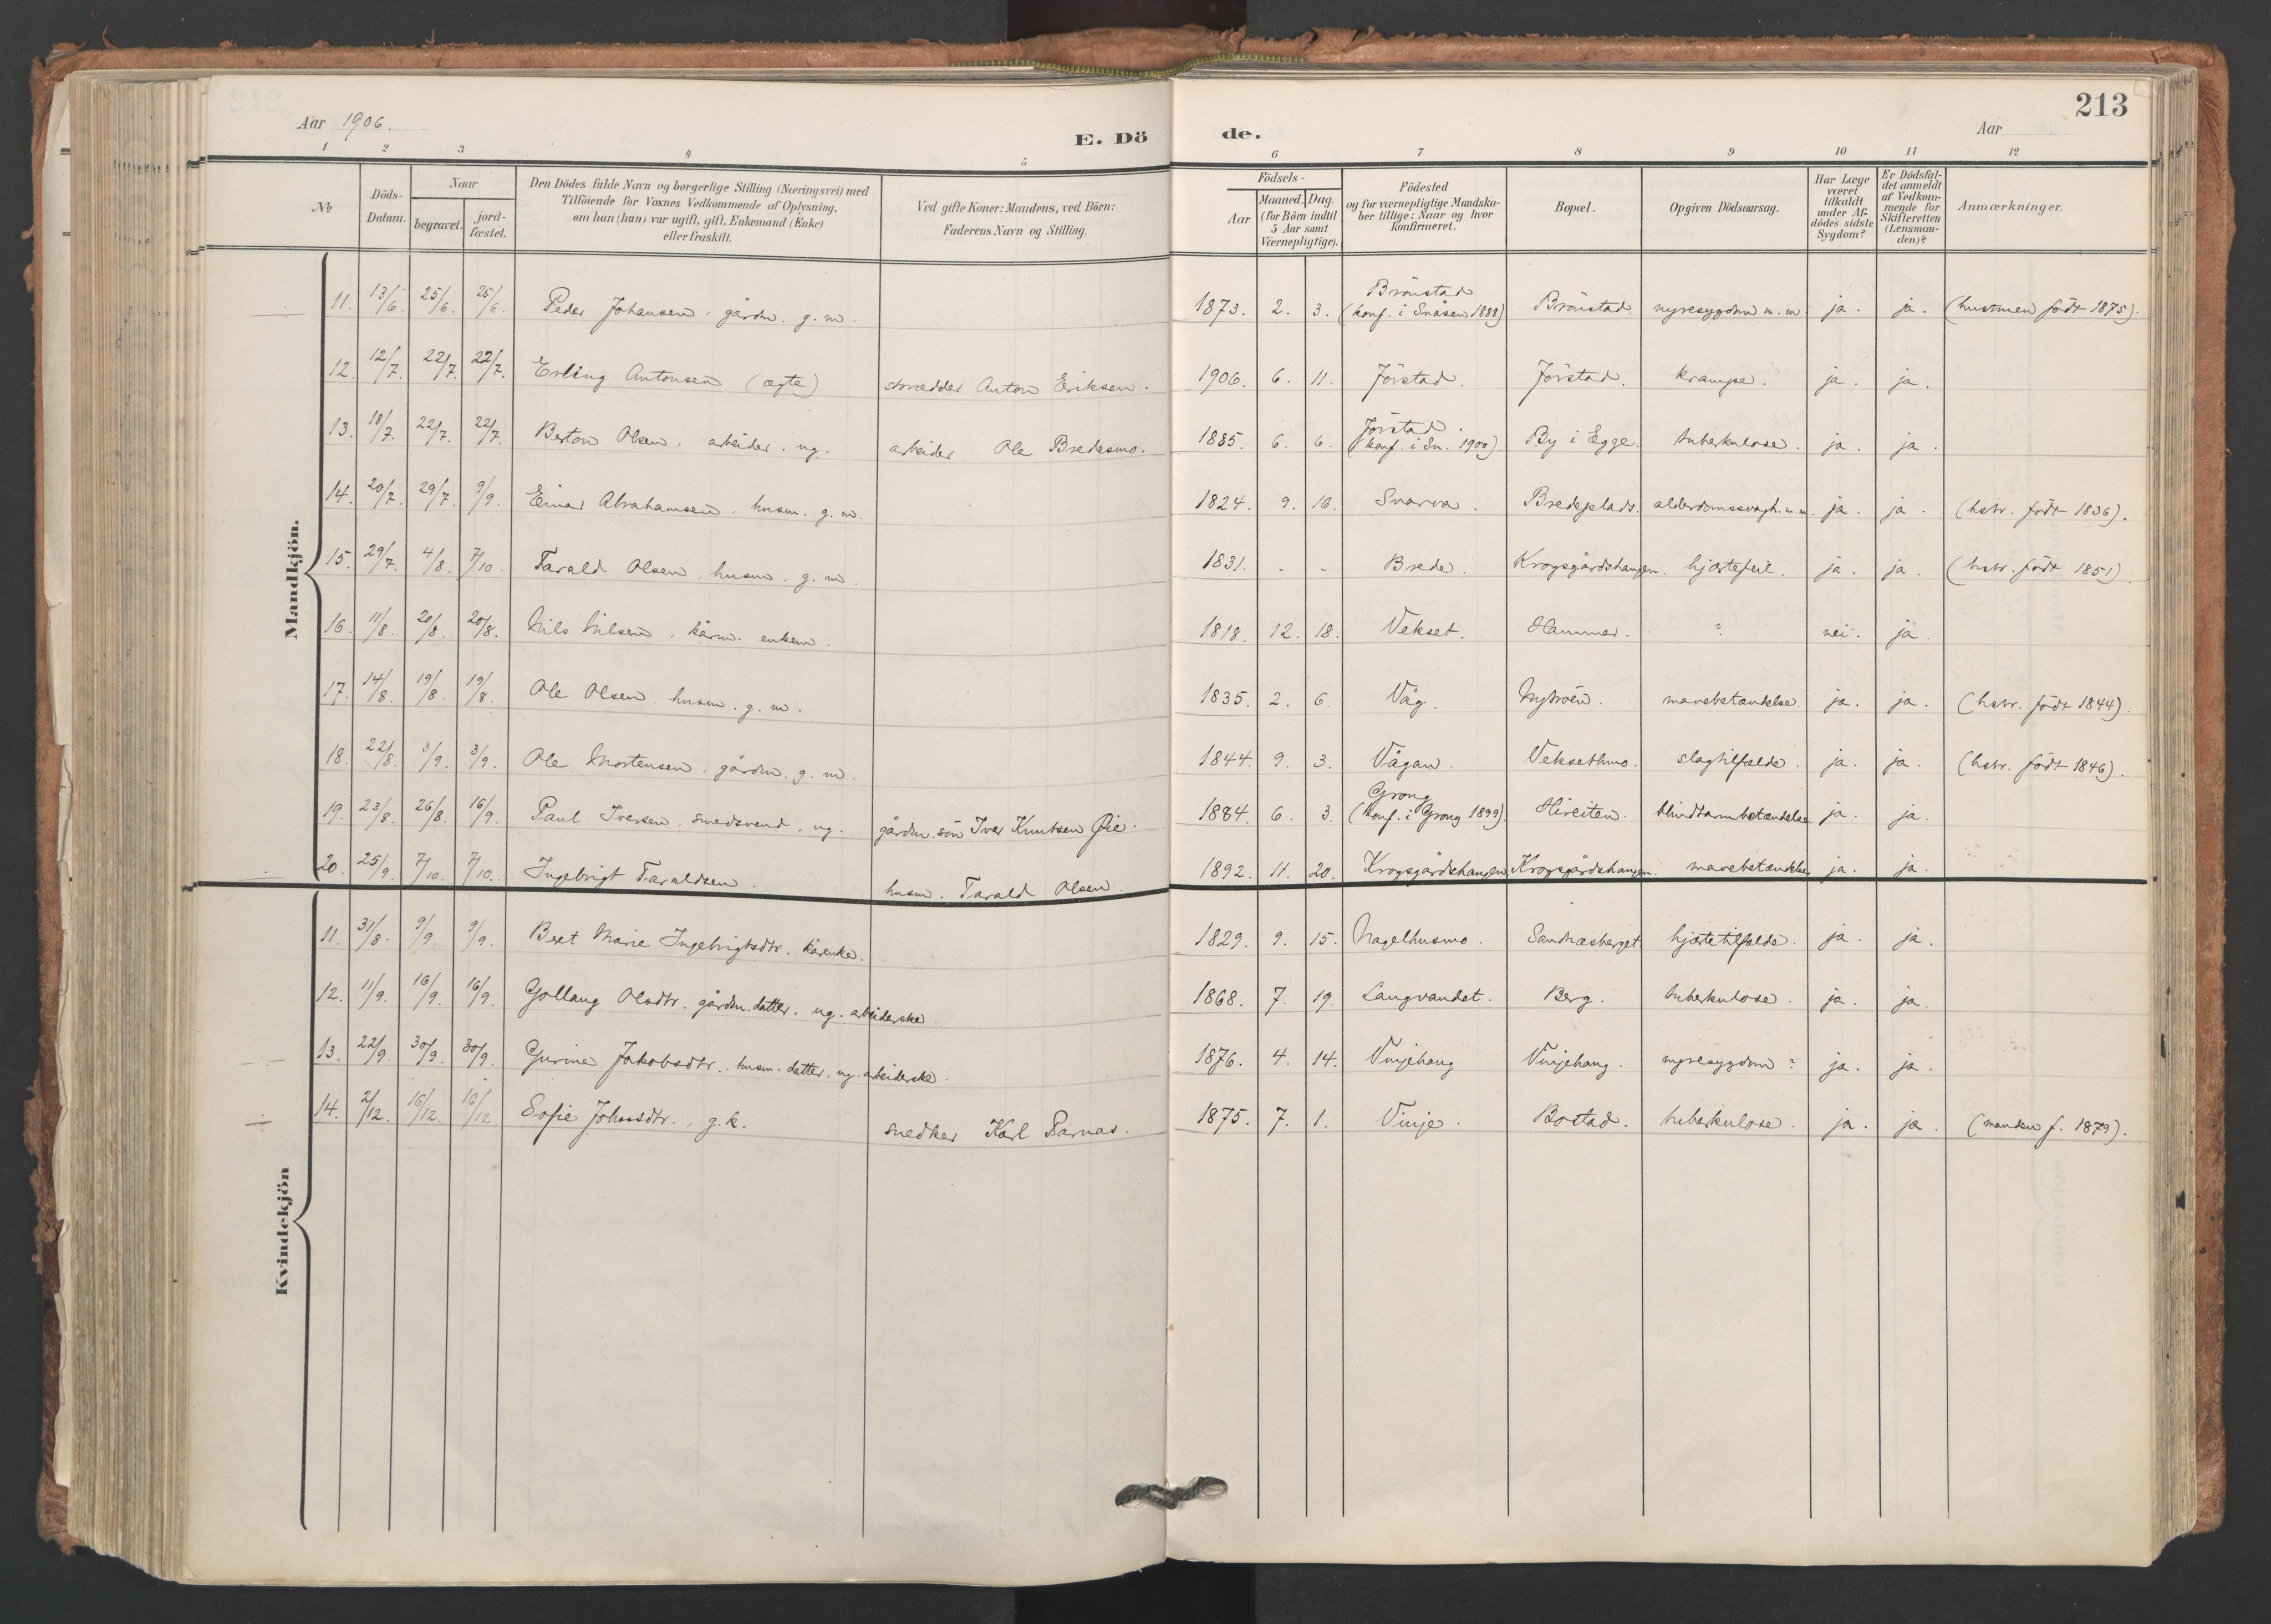 213
Aar 1906.
E. Dö de.
Aar
1 2 3 4 5 6 7 8 9 10 11 12
№
Döds-Datum.
Naar
begravet.
jord-fæstet.
Den Dödes fulde Navn og borgerlige Stilling (Næringsvei) med
Tilföiende for Voxnes Vedkommende af Oplysning,
om han (hun) var ugift, gift, Enkemand (Enke)
eller fraskilt.
Ved gifte Koner: Mandens, ved Börn:
Faderens Navn og Stilling.
Födsels-
Aar
Maaned. Dag.
(for Börn indtil
5 Aar samt
Værnepligtige).
Födested
og for værnepligtige Mandska-
ber tillige: Naar og hvor
konfirmeret.
Bopæl.
Opgiven Dödsaarsag.
Har Læge
været
tilkaldt
under Af-
dödes sidste
Sygdom?
Er Dödsfal-
det anmeldt
af Vedkom-
mende for
Skifteretten
(Lensman-
den)?
Anmærkninger.
Mandkjön.
11. 13/6. 25/6. 25/6. Peder Johansen, gårdm. g. m. 1873. 2. 3. Brönstad (konf. i Snåsen 1888) Brönstad. nyresygdom m. m. ja. ja. (hustruen födt 1875).
12. 12/7. 22/7. 22/7. Erling Antonsen (ægte) skrædder Anton Eriksen. 1906. 6. 11. Jörstad. Jörstad. krampe. ja. ja.
13. 18/7. 22/7. 22/7. Berton Olsen, arbeider, ug. arbeider Ole Bredesmo. 1885. 6. 6. Jörstad. (konf. i Sn. 1900). By i Egge. tuberkulose. ja. ja.
14. 20/7. 29/7. 9/9. Einar Abrahamsen, husm. g. m. 1824. 9. 16. Snarva. Bredeplads. alderdomssvagh. m.m. ja. ja. (hstr. födt 1836).
15. 29/7. 4/8. 7/10. Tarald Olsen, husm. g. m. 1831. - - Brede. Krogsgårdshaugen. hjertefeil. ja. ja. (hstr. födt 1851).
16. 11/8. 20/8. 20/8. Nils Nilsen, kårm. enkem. 1818. 12. 18. Vekset. Hammer. ? nei. ja.
17. 14/8. 19/8. 19/8. Ole Olsen, husm. g. m. 1835. 2. 6. Våg. Nytröen. mavebetændelse. ja. ja. (hstr. födt 1844).
18. 22/8. 3/9. 3/9. Ole Mortensen, gårdm. g. m. 1844. 9. 3. Vågan. Veksethmo. slagtilfælde. ja. ja. (hstr. födt 1846).
19. 23/8. 26/8. 16/9. Paul Iversen, smedsvend, ug. gårdm. sön Iver Knutsen Øie. 1884. 6. 3. Grong (konf. i Grong 1899). blindtarmbetændelse. ja. ja.
20. 25/9. 7/10. 7/10. Ingebrigt Taraldsen. husm. Tarald Olsen. 1892. 11. 20. Krogsgårdshaugen. Krogsgårdshaugen. mavebetændelse ja. ja.
Kvindekjön
11. 31/8. 9/9. 9/9. Beret Marie Ingebrigtsdtr. kårenke. 1829. 9. 15. Nagelhusmo. Sandnæsberget hjertetilfælde. ja. ja.
12. 11/9. 16/9. 16/9. Gollaug Olsdtr. gårdm.datter, ug. arbeiderske. 1868. 7. 19. Langvandet. Berg. tuberkulose. ja. ja.
13. 22/9. 30/9. 30/9. Gurine Jakobsdtr., husm. datter, ug. arbeiderske. 1876. 4. 14. Vinjehaug Vinjehaug. nyresygdom? ja. ja.
14. 2/12. 16/12. 16/12 Sofie Johnsdtr., g. k. snedker Karl Parnas. 1875. 7. 1. Vinje. Bostad. tuberkulose. ja. ja. (manden f. 1879).